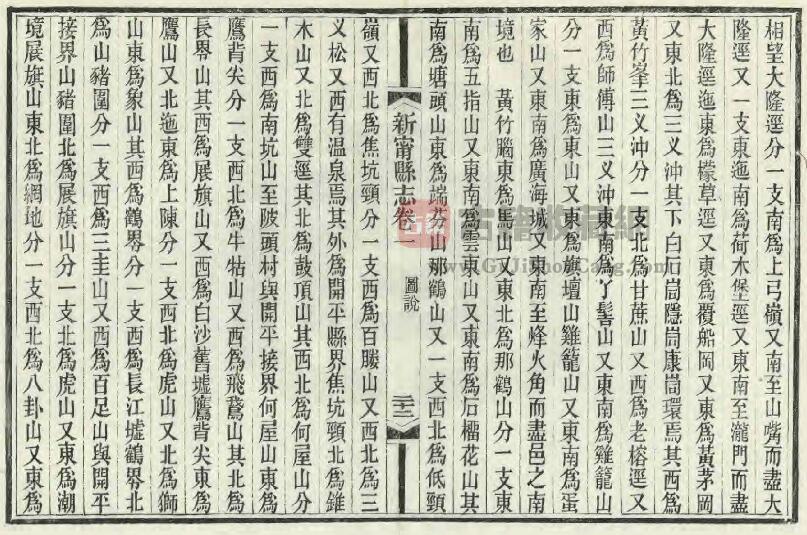 相望大隆逕分一支南爲上弓嶺又南至山嘴而盡大
隆逕又一支東迤南爲荷木堡逕又東南至瀧門而盡
大隆逕迤東爲檬草逕又東爲覆船岡又東爲黃茅岡
又東北爲三义沖其下白石峝隱峝康峝環焉其西爲
黃竹峯三义沖分一支北爲甘蔗山又西爲老榕逕又
西爲師傅山三义沖東南爲丫髻山又東南爲雞籠山
分一支東爲東山又東爲旗壇山雞籠山又東南爲蛋
家山又東南爲廣海城又東南至烽火角而盡邑之南
境也 黃竹腦東爲馬山又東北爲那鶴山分一支東
南爲五指山又東南爲雲東山又東南爲石榴花山其
南爲塘頭山東爲端芬山那鶴山又一支西北爲低頸
新甯縣志卷一 圖說 二十三
嶺又西北爲焦坑頸分一支西爲百䑺山又西北爲三
义松又西有温泉焉其外爲開平縣界焦坑頸北爲錐
木山又北爲雙逕其北爲鼓頂山其西北爲何屋山分
一支西爲南坑山至陂頭村與開平接界何屋山東爲
鷹背尖分一支西北爲牛牯山又西爲飛鵞山其北爲
長崈山其西爲展旗山又西爲白沙舊墟鷹背尖東爲
鷹山又北迤東爲上陳分一支西北爲虎山又北爲獅
山東爲象山其西爲鶴界分一支西爲長江墟鶴界北
爲山豬圍分一支西爲三圭山又西爲百足山與開平
接界山豬圍北爲展旗山分一支北爲虎山又東爲潮
境展旗山東北爲網地分一支西北爲八卦山又東爲
古籍收藏網
www.GuJiShouCang.com